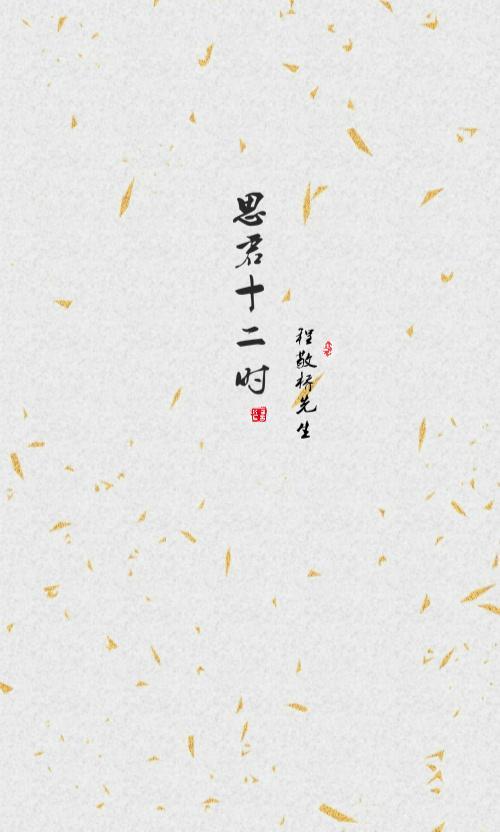 程敬桥先生
思君十二时